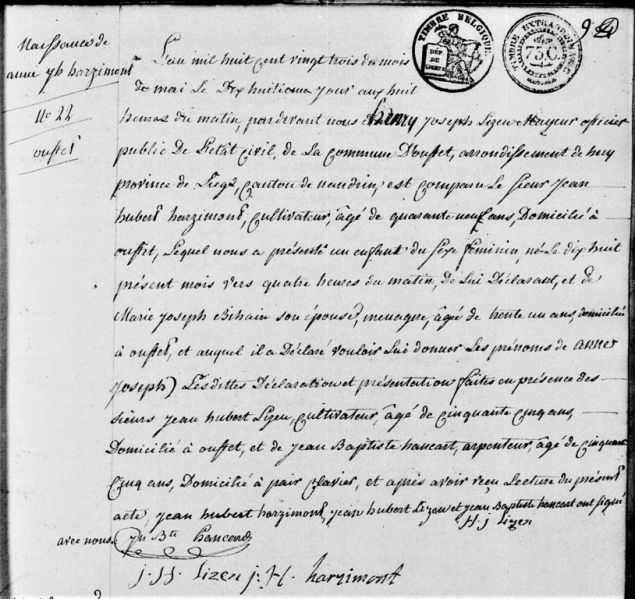 9
TIMBRE BELGIQUE
DEP DE LIEGE
TIMBRE EXTRAORDINAIRE
75 C.
Naissance de
anne jh harzimont
N° 22
ouffet
L'an mil huit cent vingt trois du mois
de mai le Dix huitieme jour aux huit
heures du matin, pardevant nous henry joseph Lizen Mayeur officier
public De L'etat civil, de La Commune D'ouffet, arrondissement de huy
province de Liege, Canton de nandrin, est comparu Le sieur Jean
hubert harzimont, cultivateur, âgé de quarante neuf ans, Domicilié à
ouffet, Lequel nous a présenté un enfant du sexe feminin, né Le dix huit
présent mois vers quatre heures du matin, de Lui Déclarant, et de
Marie joseph Bihain son épouse, menagere, âgée de trente un ans, domiciliée
à ouffet, et auquel il a Déclaré vouloir Lui donner Les prénoms de anne
joseph) Lesdittes Déclaration et présentation faites en présence des
sieurs jean hubert Lizen, cultivateur, âgé de cinquante cinq ans,
Domicilié à ouffet, et de jean Baptiste hancart, arpenteur, âgé de cinquante
cinq ans, Domicilié à pair Clavier, et après avoir reçu Lecture du présent
acte, jean hubert harzimont, jean hubert Lizen et jean Baptiste hancart ont signé
avec nous. jn Bte hancard H. j Lizen
j. H. Lizen j. H. harzimont